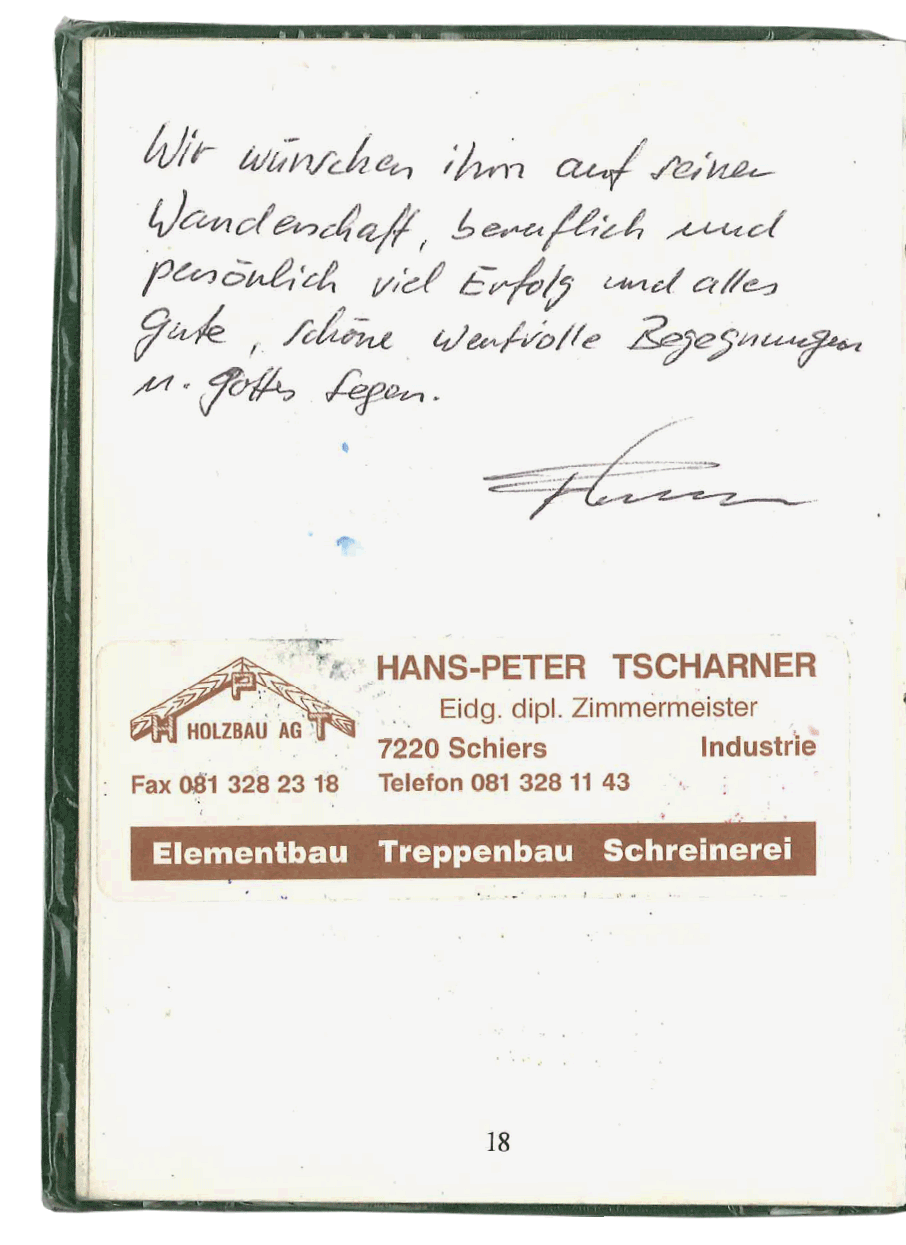 Wir wünschen ihm auf seiner
Wanderschaft, beruflich und
persönlich viel Erfolg und alles
Gute, schöne wertvolle Begegnungen
u. Gottes Segen.
HPT
HOLZBAU AG
HANS-PETER TSCHARNER
Eidg. dipl. Zimmermeister
7220 Schiers Industrie
Fax 081 328 23 18 Telefon 081 328 11 43
Elementbau Treppenbau Schreinerei
18